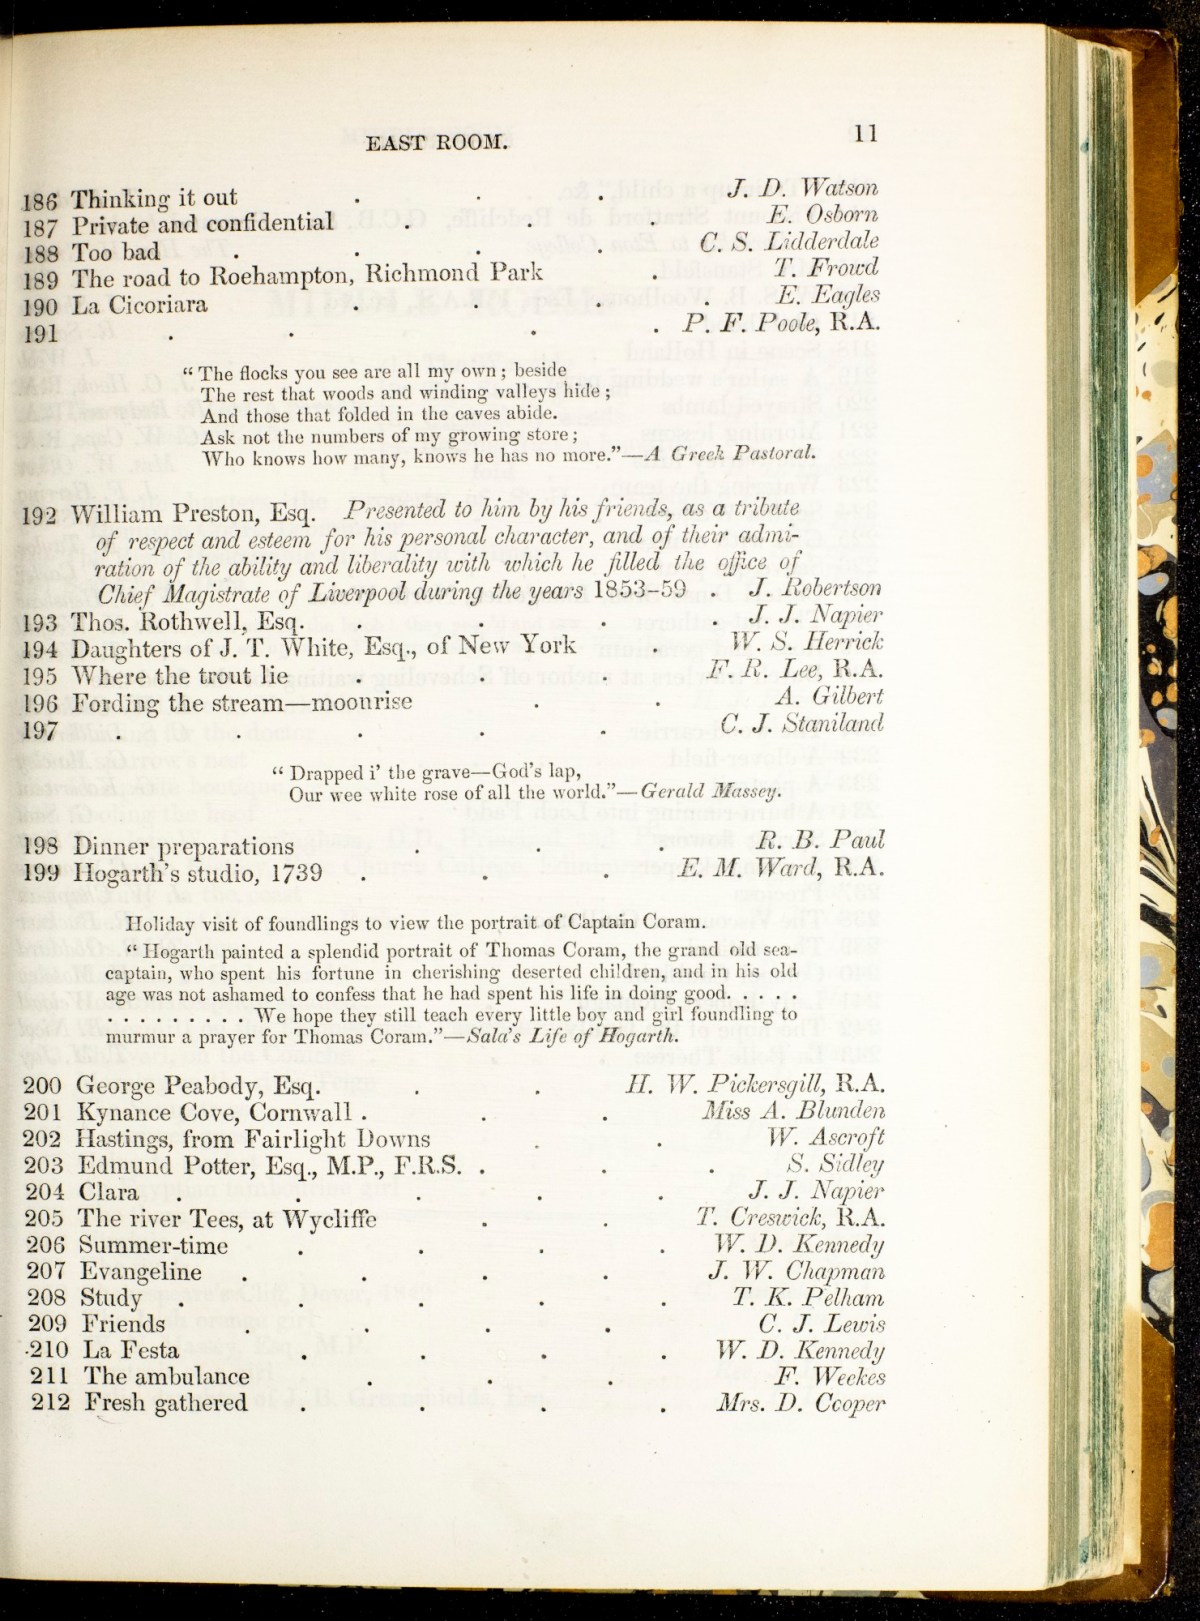 EAST ROOM. 11
186 Thinking it out . . . J. D. Watson
187 Private and confidential . . . E. Osborn
188 Too bad . . . . C. S. Lidderdale
189 The road to Roehampton, Richmond Park . T. Frowd
190 La Cicoriara . . . . E. Eagles
191 . . . . . P. F. Poole, R.A.
“ The flocks you see are all my own ; beside
The rest that woods and winding valleys hide ;
And those that folded in the caves abide.
Ask not the numbers of my growing store ;
Who knows how many, knows he has no more.”—A Greek Pastoral.
192 William Preston, Esq. Presented to him by his friends, as a tribute
of respect and esteem for his personal character, and of their admi-
ration of the ability and liberality with which he filled the office of
Chief Magistrate of Liverpool during the years 1853–59 . J. Robertson
193 Thos. Rothwell, Esq. . . . J. J. Napier
194 Daughters of J. T. White, Esq., of New York . W. S. Herrick
195 Where the trout lie . . . F. R. Lee, R.A.
196 Fording the stream—moonrise . . A. Gilbert
197 . . . . . C. J. Staniland
“ Drapped i’ the grave—God’s lap,
Our wee white rose of all the world.”—Gerald Massey.
198 Dinner preparations . . R. B. Paul
199 Hogarth’s studio, 1739 . . . E. M. Ward, R.A.
Holiday visit of foundlings to view the portrait of Captain Coram.
“ Hogarth painted a splendid portrait of Thomas Coram, the grand old sea-
captain, who spent his fortune in cherishing deserted children, and in his old
age was not ashamed to confess that he had spent his life in doing good. . . . .
. . . . . . . . . We hope they still teach every little boy and girl foundling to
murmur a prayer for Thomas Coram.”—Sala’s Life of Hogarth.
200 George Peabody, Esq. . . H. W. Pickersgill, R.A.
201 Kynance Cove, Cornwall . . . Miss A. Blunden
202 Hastings, from Fairlight Downs . . W. Ascroft
203 Edmund Potter, Esq., M.P., F.R.S. . . . S. Sidley
204 Clara . . . . . J. J. Napier
205 The river Tees, at Wycliffe . . T. Creswick, R.A.
206 Summer-time . . . . W. D. Kennedy
207 Evangeline . . . . J. W. Chapman
208 Study . . . . . T. K. Pelham
209 Friends . . . . C. J. Lewis
210 La Festa . . . . W. D. Kennedy
211 The ambulance . . . F. Weekes
212 Fresh gathered . . . . Mrs. D. Cooper